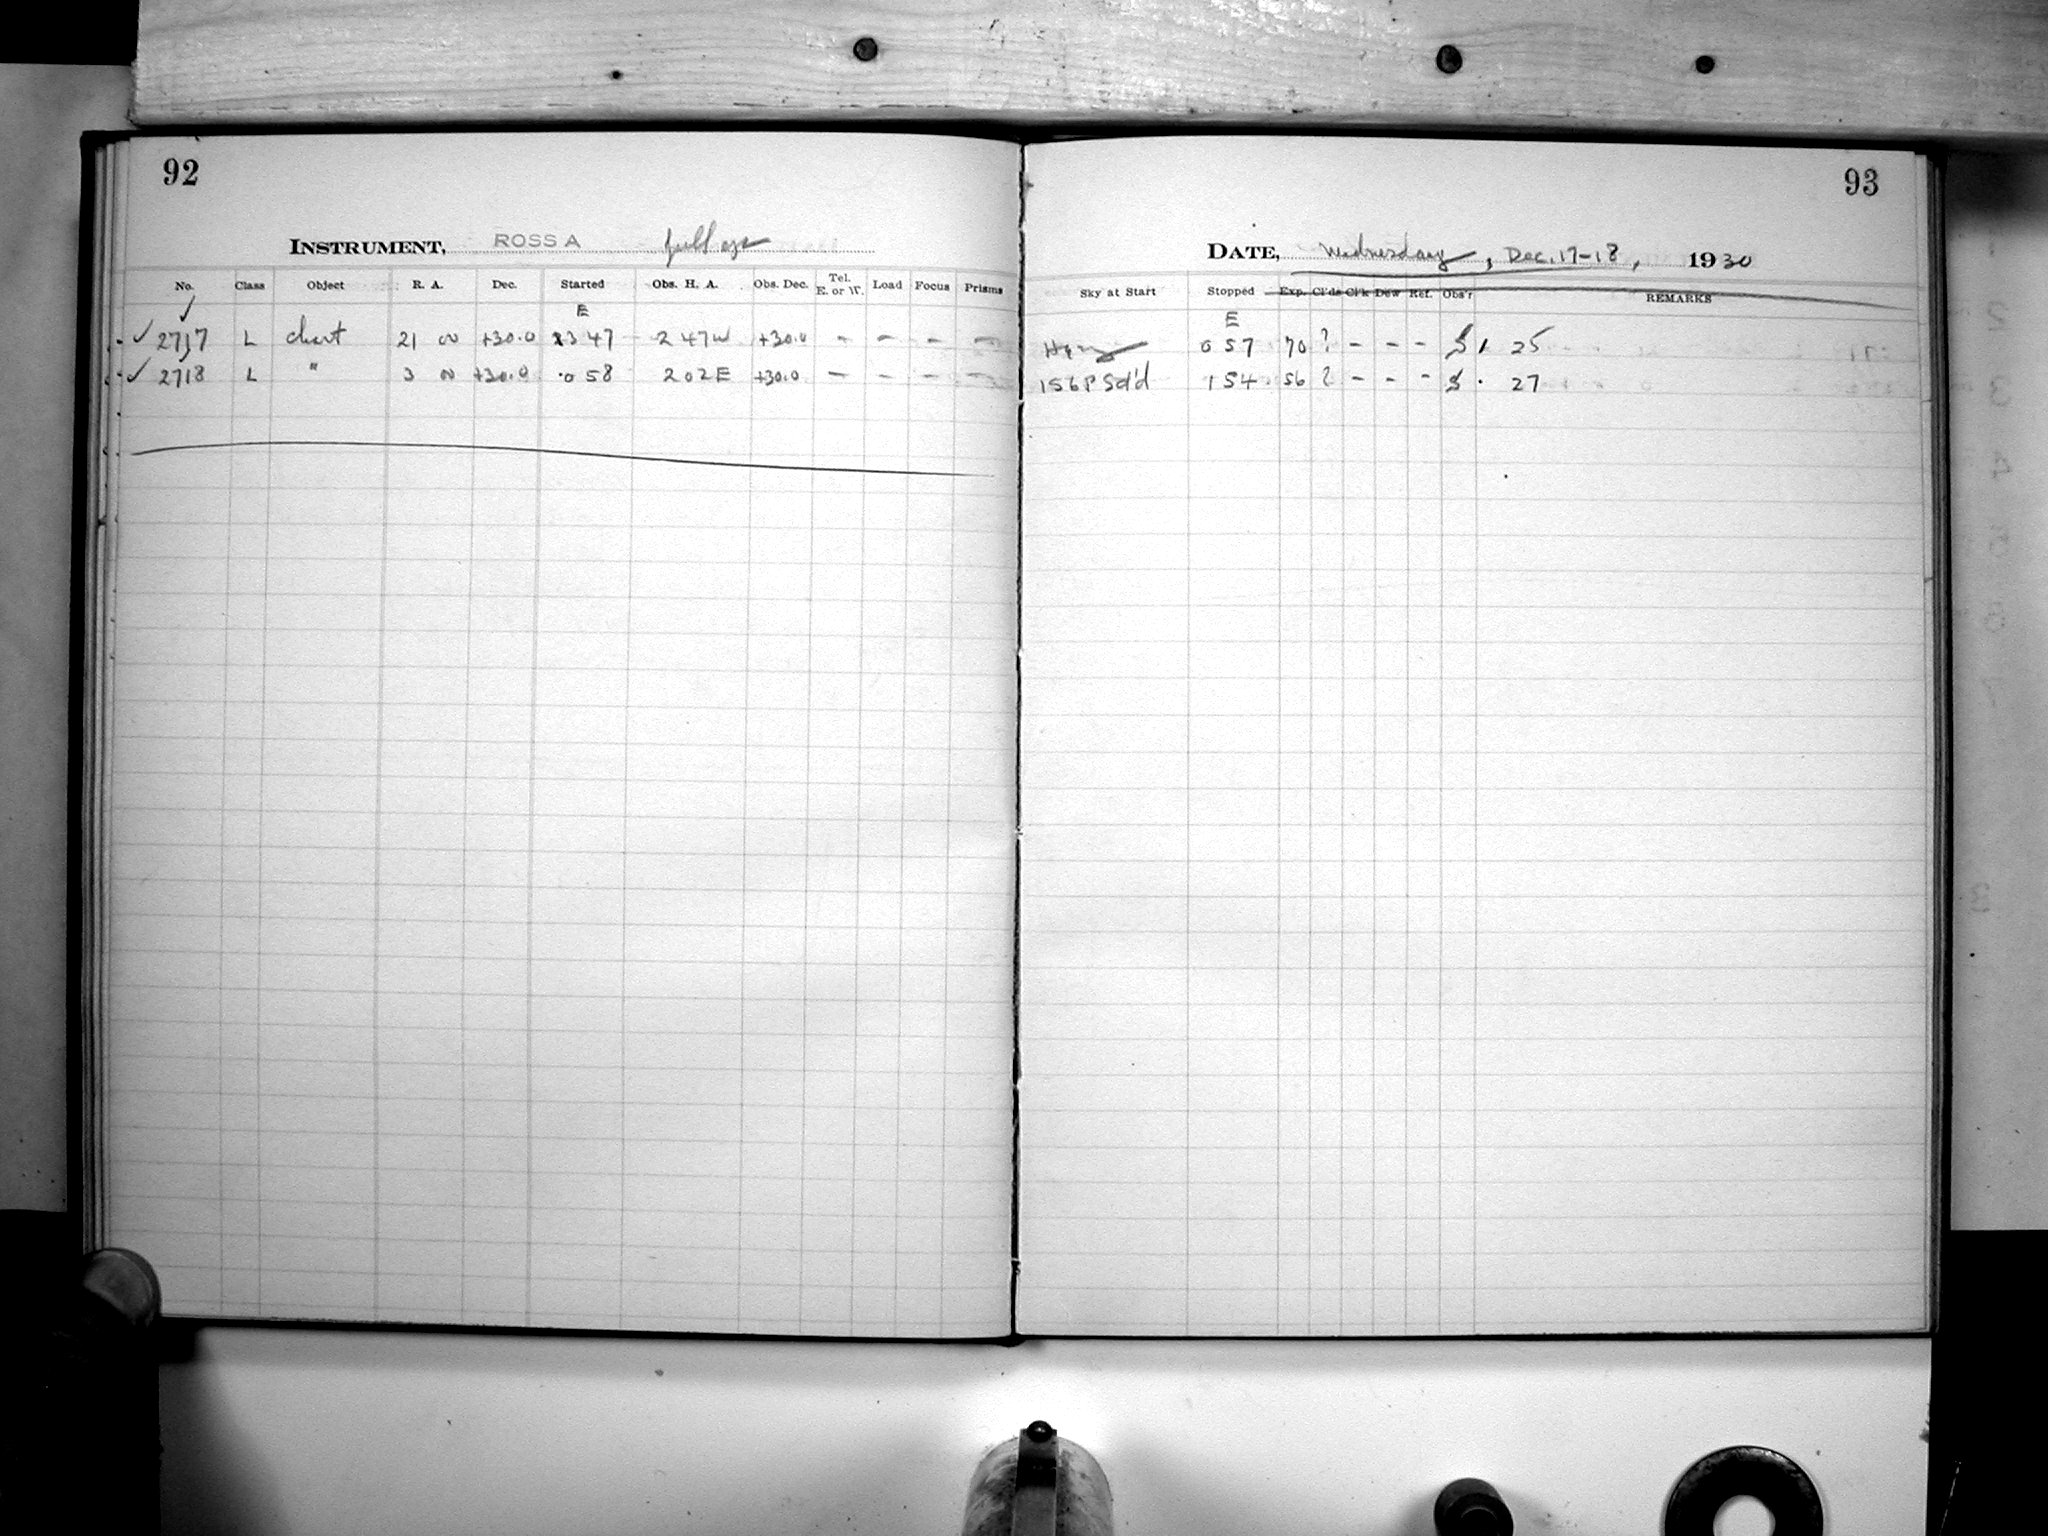 92
INSTRUMENT, ROSS A full ap
No. Class Object R. A. Dec. Started Obs. H. A. Obs. Dec. Tel. E. or W. Load Focus Prisms
✓ E
✓ 2717 L chart 21 00 +30.0 23 47 2 47 W +30.0 - - - -
✓ 2718 L " 3 00 +30.0 0 58 2 02 E +30.0 - - - -
93
DATE, Wednesday, Dec. 17-18, 1930
Sky at Start Stopped Exp. Cl'ds Cl'k Dew Ref. Obs'r REMARKS
E
Hazy 0 57 70 ? - - - S. 25
1 54 56 ? - - - S. 27